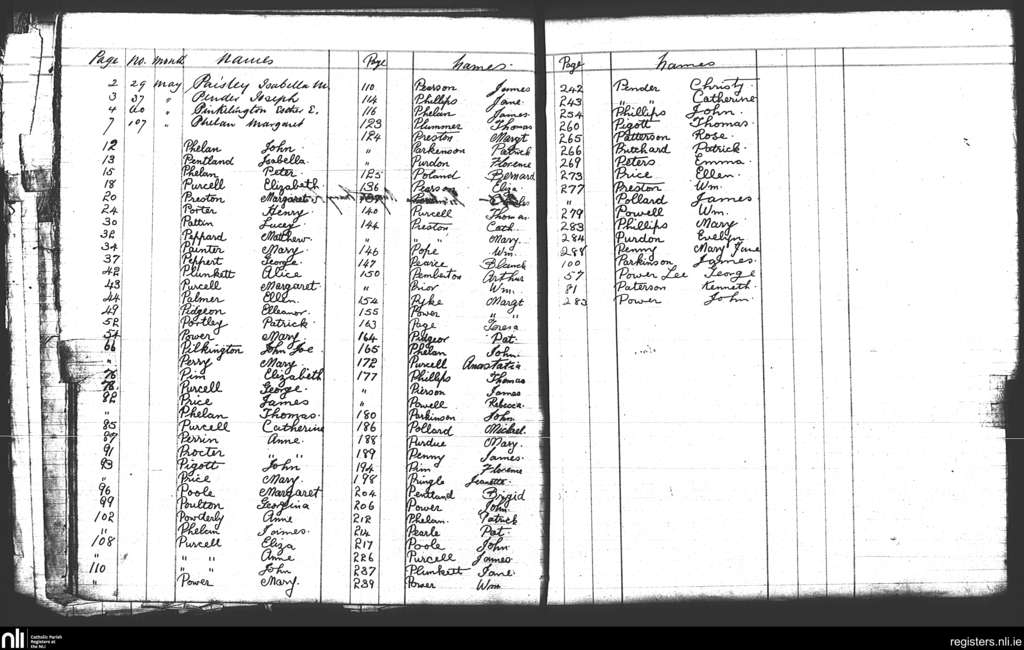 Page No. Month Names
2 29 May Paisley Isabella M.
3 37 " Pender Joseph
4 60 " Pinkelington Esther E.
7 107 " Phelan Margaret
12 Phelan John
13 Pentland Isabella
15 Phelan Peter
18 Purcell Elizabeth
20 Preston Margaret
24 Porter Henry
30 Pattin Lucy
32 Peppard Mathew
34 Painter Mary
37 Peppert George
42 Plunkett Alice
43 Purcell Margaret
44 Palmer Ellen
49 Pidgeon Elleanor
52 Portley Patrick
54 Power Mary
66 Pilkington John Joe
" Perry Mary
76 Pim Elizabeth
78 Purcell George
82 Price James
" Phelan Thomas
85 Purcell Catherine
87 Perrin Anne
91 Procter " "
93 Pigott John
" Price Mary
96 Poole Margaret
99 Poulton Georgina
102 Powderly Anne
" Phelan James
108 Purcell Eliza
" " " Anne
110 " " John
" Power Mary
Page Names
110 Pearson James
114 Phillips Jane
116 Phelan James
123 Plummer Thomas
124 Preston Margt
" Parkenson Patrick
" Purdon Florence
125 Poland Bernard
136 Pearson Eliza
137
140 Purcell Thomas
144 Preston Cath.
" " " Mary
146 Pope Wm.
147 Pearce Blanch
150 Pemberton Arthur
" Prior Wm.
154 Pyke Margt
155 Power " "
163 Page Teresa
164 Pidgeor Pat.
165 Phelan John
172 Purcell Anastatia
177 Phillips Thomas
" Pierson James
" Powell Rebecca
180 Parkinson John
186 Pollard Michael
188 Purdue Mary
189 Penny James
194 Pim Florence
198 Pringle Jeanette
204 Pentland Brigid
206 Power John
212 Phelan Patrick
214 Pearle Pat
217 Poole John
226 Purcell James
237 Plunkett Jane
239 Power Wm
Page Names
242 Pender Christy
243 " " Catherine
254 Phillips John
260 Pigott Thomas
265 Patterson Rose
266 Pritchard Patrick
269 Peters Emma
273 Price Ellen
277 Preston Wm.
" Pollard James
279 Powell Wm.
283 Phillips Mary
284 Purdon Evelyn
288 Penny Mary Jane
100 Parkinson James
57 Power Lee George
81 Paterson Kenneth
283 Power John
nli Catholic Parish Registers at the NLI
registers.nli.ie